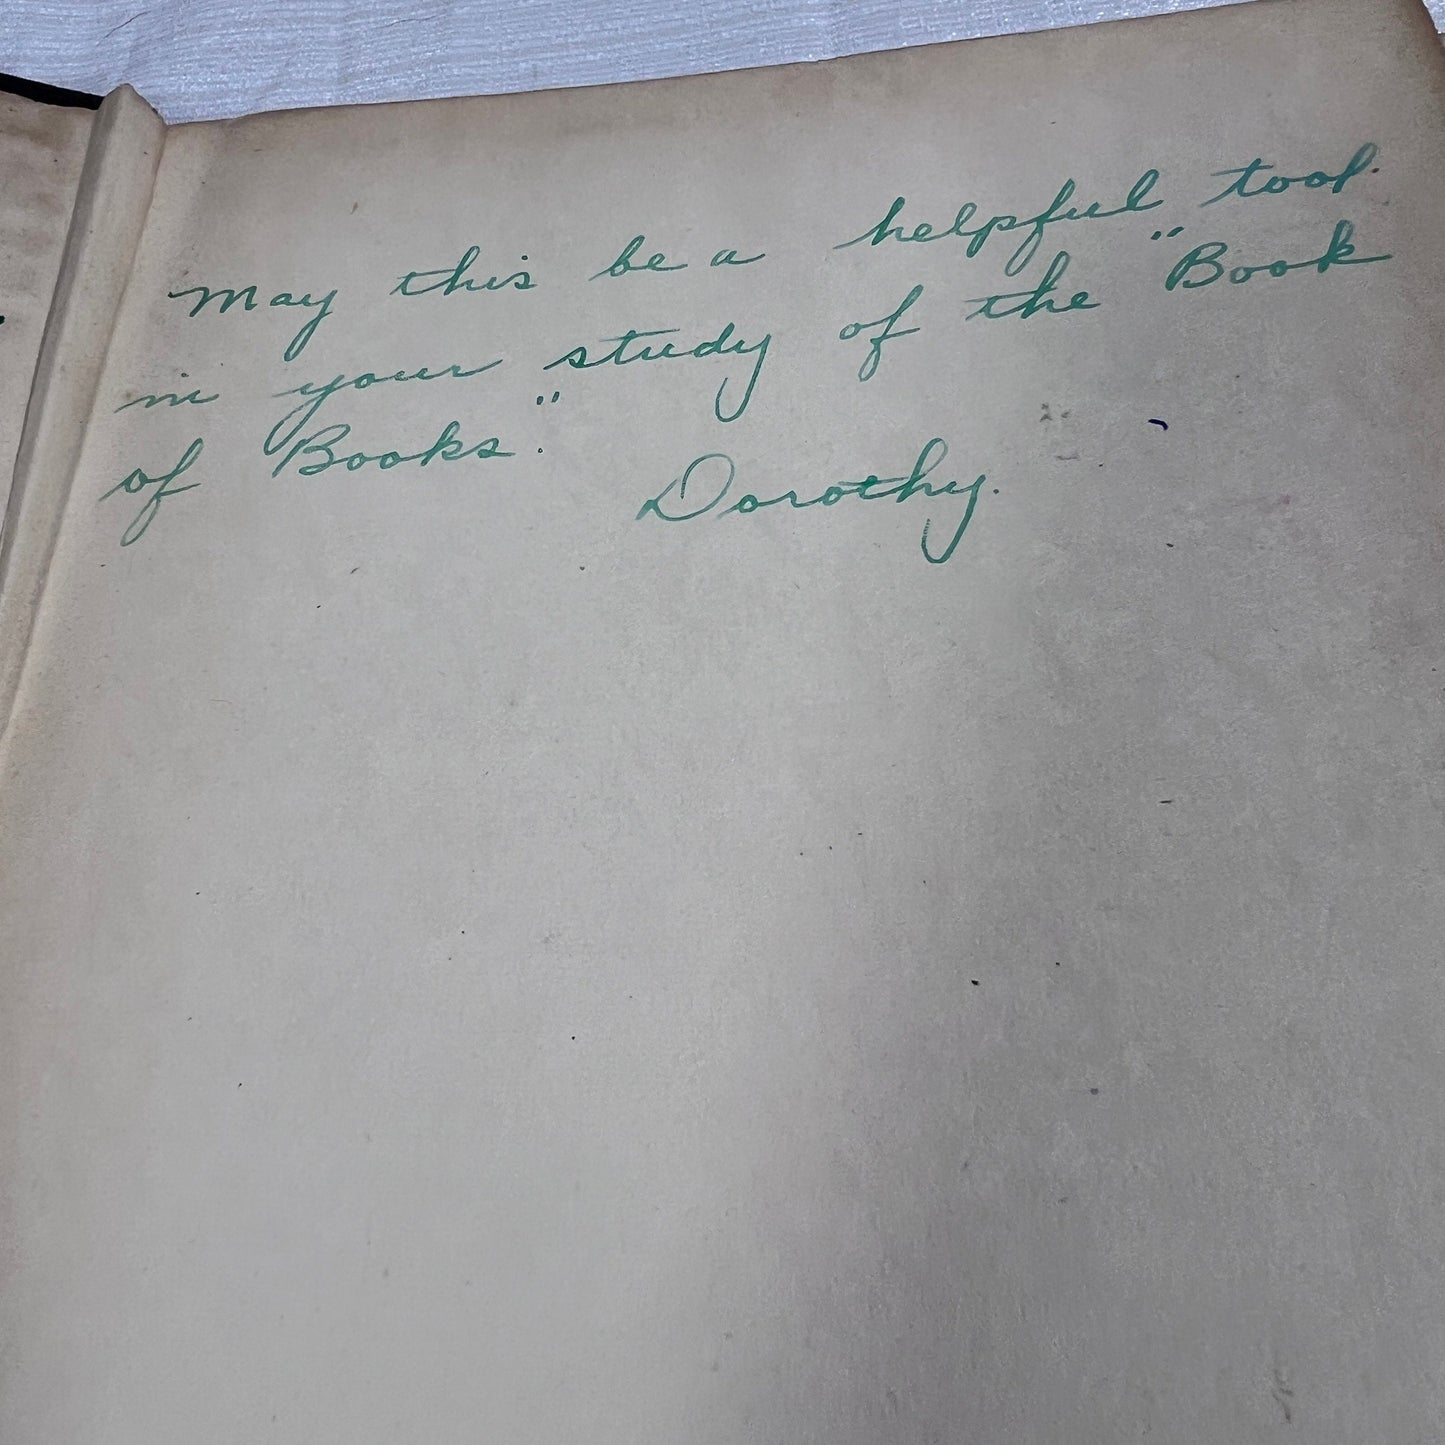 May this be a helpful tool.
in your study of the "Book
of Books."
Dorothy.